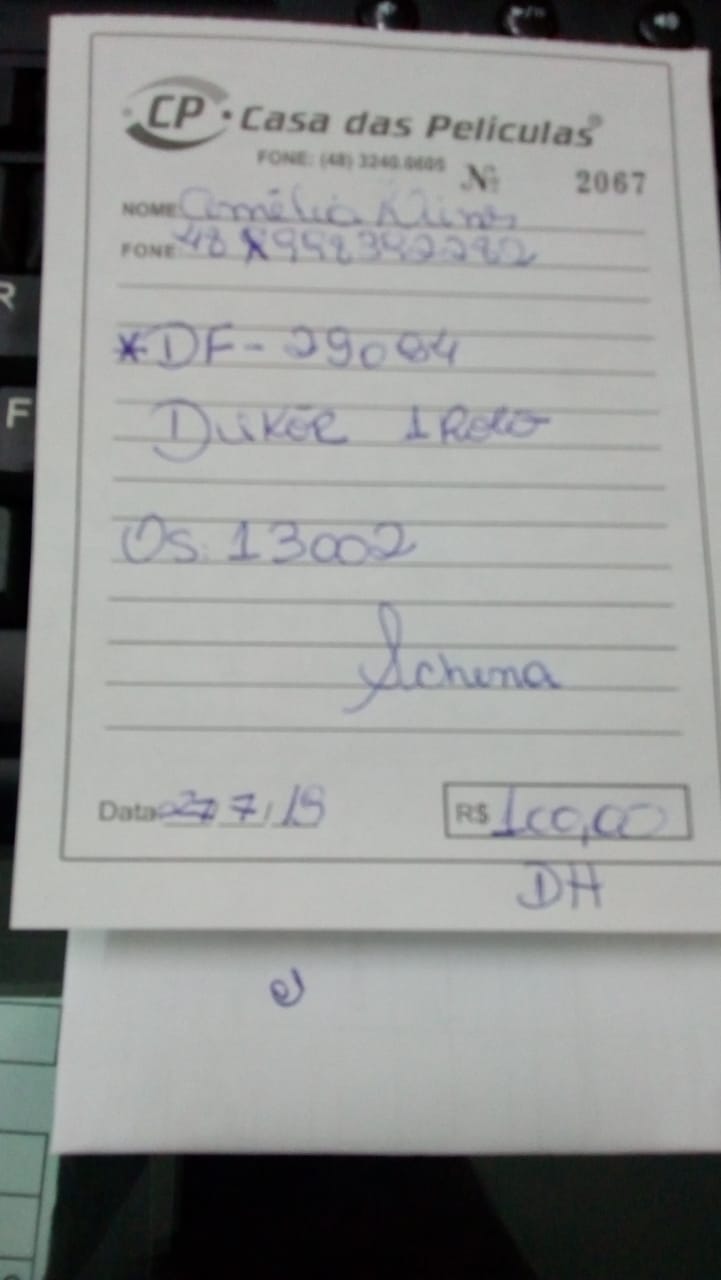 CP • Casa das Películas®
FONE: (48) 3240.6605 Nº 2067
NOME Amélia
FONE 48
*DF-29084
DUKOR 1 Rolo
Os. 13002
Schena
Data 27/7/19 R$ 100,00
DH
R
F